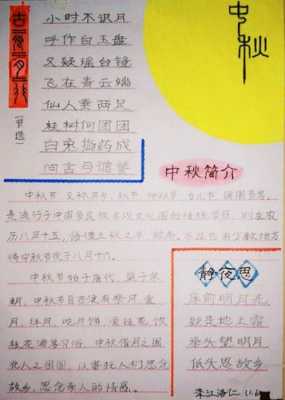 古朗月行
(节选)
小时不识月
呼作白玉盘
又疑瑶台镜
飞在青云端
仙人垂两足
桂树何团团
白兔捣药成
问言与谁餐
中秋
中秋简介
中秋节 又称月夕、秋节、仲秋节
是流行于中国众民族
历八月十五
将中秋节定于八月十六。
中秋节始于唐代,盛于宋
朝,中秋节自古便有祭月、赏
月、拜月、吃月饼、赏桂花、饮
桂花酒等习俗。中秋借月之圆
兆人之团圆,以寄托人们思念
故乡,思念亲人的情感。
静夜思
床前明月光
疑是地上霜
举头望明月
低头思故乡